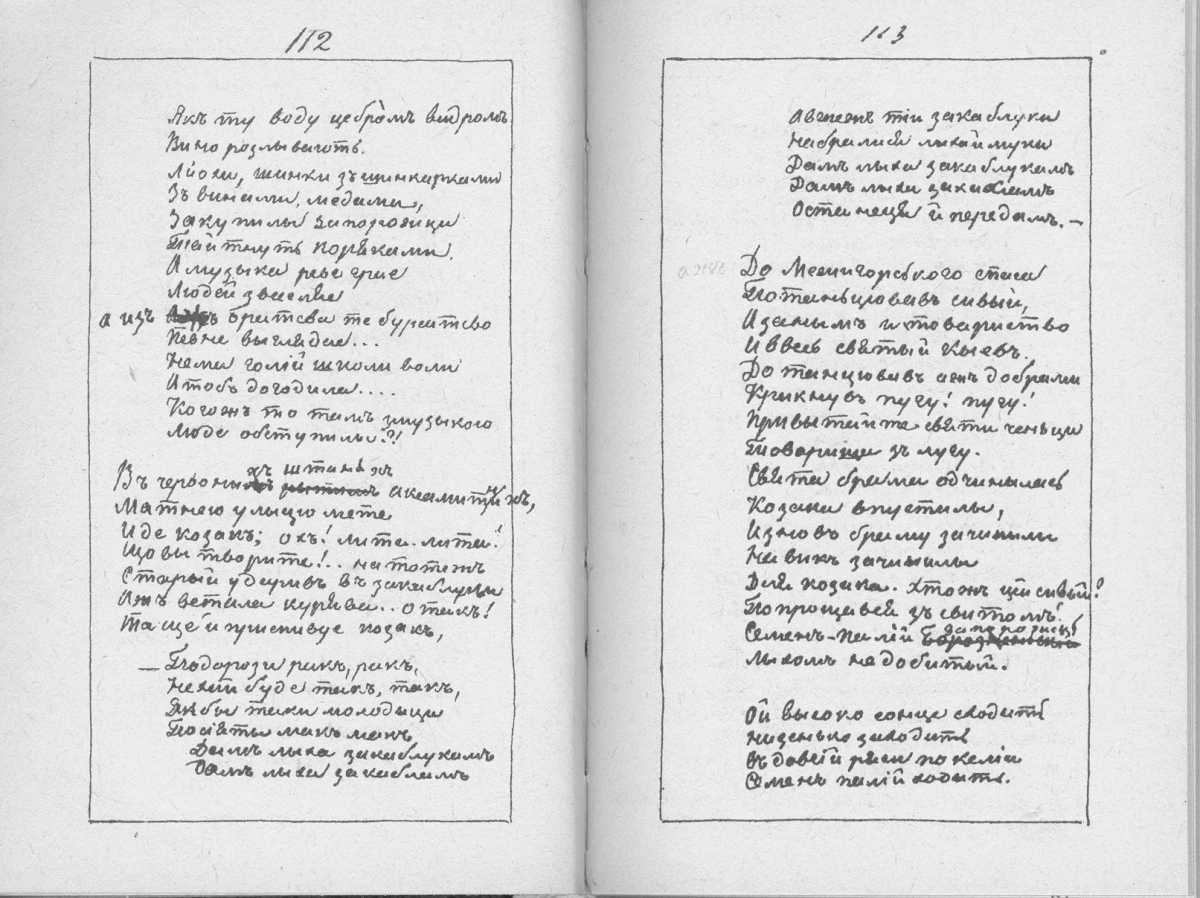 112
Якъ ту воду цебромъ видромъ
Вино розлываютъ.
Лёхи, шинки зъ шинкарками
Зъ винами, медами,
Закупилы запорозци
Тай тнуть коряками.
А музыка реве грие
Людей звеселяе
а изъ братсва те бурсатсво
Певне выглядае...
Нема голій школи воли
А тобъ догодила....
Когожъ то тамъ змузыкого
Люде обступилы?!
Въ червоныхъ штанахъ оксамитныхъ,
Матнею улыцю мете
Иде козакъ; охъ! лита. лита!
Що вы творите!.. на тотежъ
Старый ударивъ въ закаблукы
Ажъ встала курява.. отакъ!
Та ще й приспивуе козакъ,
— По дорози ракъ, ракъ,
Нехай буде такъ, такъ,
Якбы таки молодыци
Посіяты макъ макъ
Дамъ лыха закаблукамъ
Дамъ лыха закабламъ
113
Авжежъ тіи закаблуки
Набралися лыхой муки
Дамъ лыха закаблукамъ
Дамъ лыха закабламъ
Останеця й передамъ.—
аже До Межигорського спаса
Потанцювавъ сивый,
А заным и товариство
И ввесь святый Кыевъ.
Дотанцювавъ ажъ до брамы
Крикнувъ пугу! пугу!
Привытайте святи ченьци
Товарища зъ лугу.
Свята брама одчинылась
Козака впустилы,
И зновъ браму зачинили
На викъ зачинылы
Для козака. Хтожъ цій сивый?
Попрощався зъ свитомъ!
Семенъ-Палій запорозець
Лыхомъ не добитый.
Ой высоко сонце сходить
Низенько заходить
Въ довгій ряси по келіи
Семенъ палій ходить.